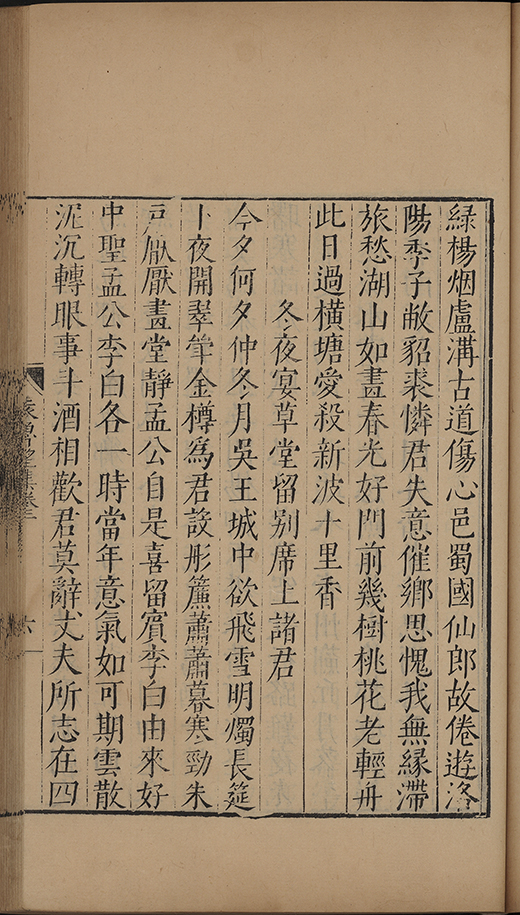 綠楊烟盧溝古道傷心邑蜀國仙郎故倦遊洛
陽季子敝貂裘憐君失意催鄉思愧我無緣滯
旅愁湖山如畫春光好門前幾樹桃花老輕舟
此日過橫塘愛殺新波十里香
冬夜宴草堂留別席上諸君
今夕何夕仲冬月吳王城中欲飛雪明燭長筵
卜夜開翠竿金樽為君設彤簾蕭蕭暮寒勁朱
戶厭厭畫堂靜孟公自是喜留賓李白由來好
中聖孟公李白各一時當年意氣如可期雲散
泥沉轉眼事斗酒相歡君莫辭丈夫所志在四
袁魯望集卷三
六